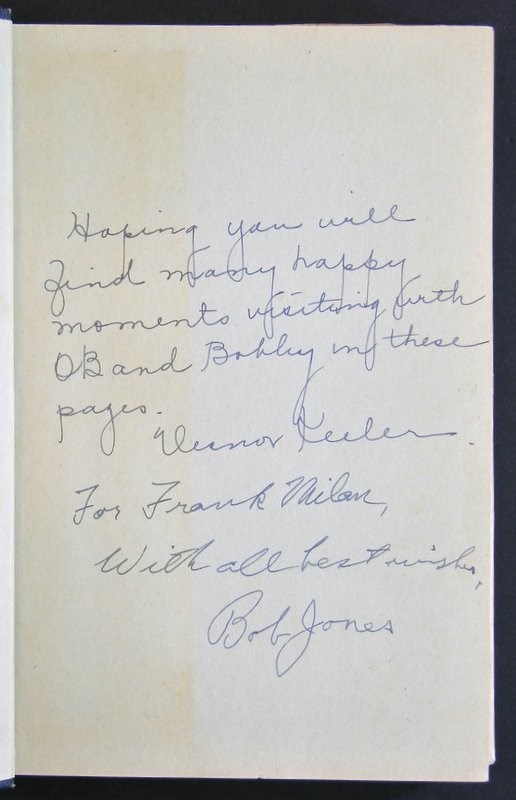 Hoping you will
find many happy
moments visiting with
OB and Bobby in these
pages.
Eleanor Keeler.
For Frank Milan,
With all best wishes,
Bob Jones